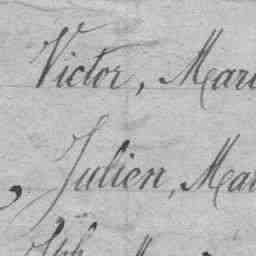 Victor, Mari
, Julien, Mar